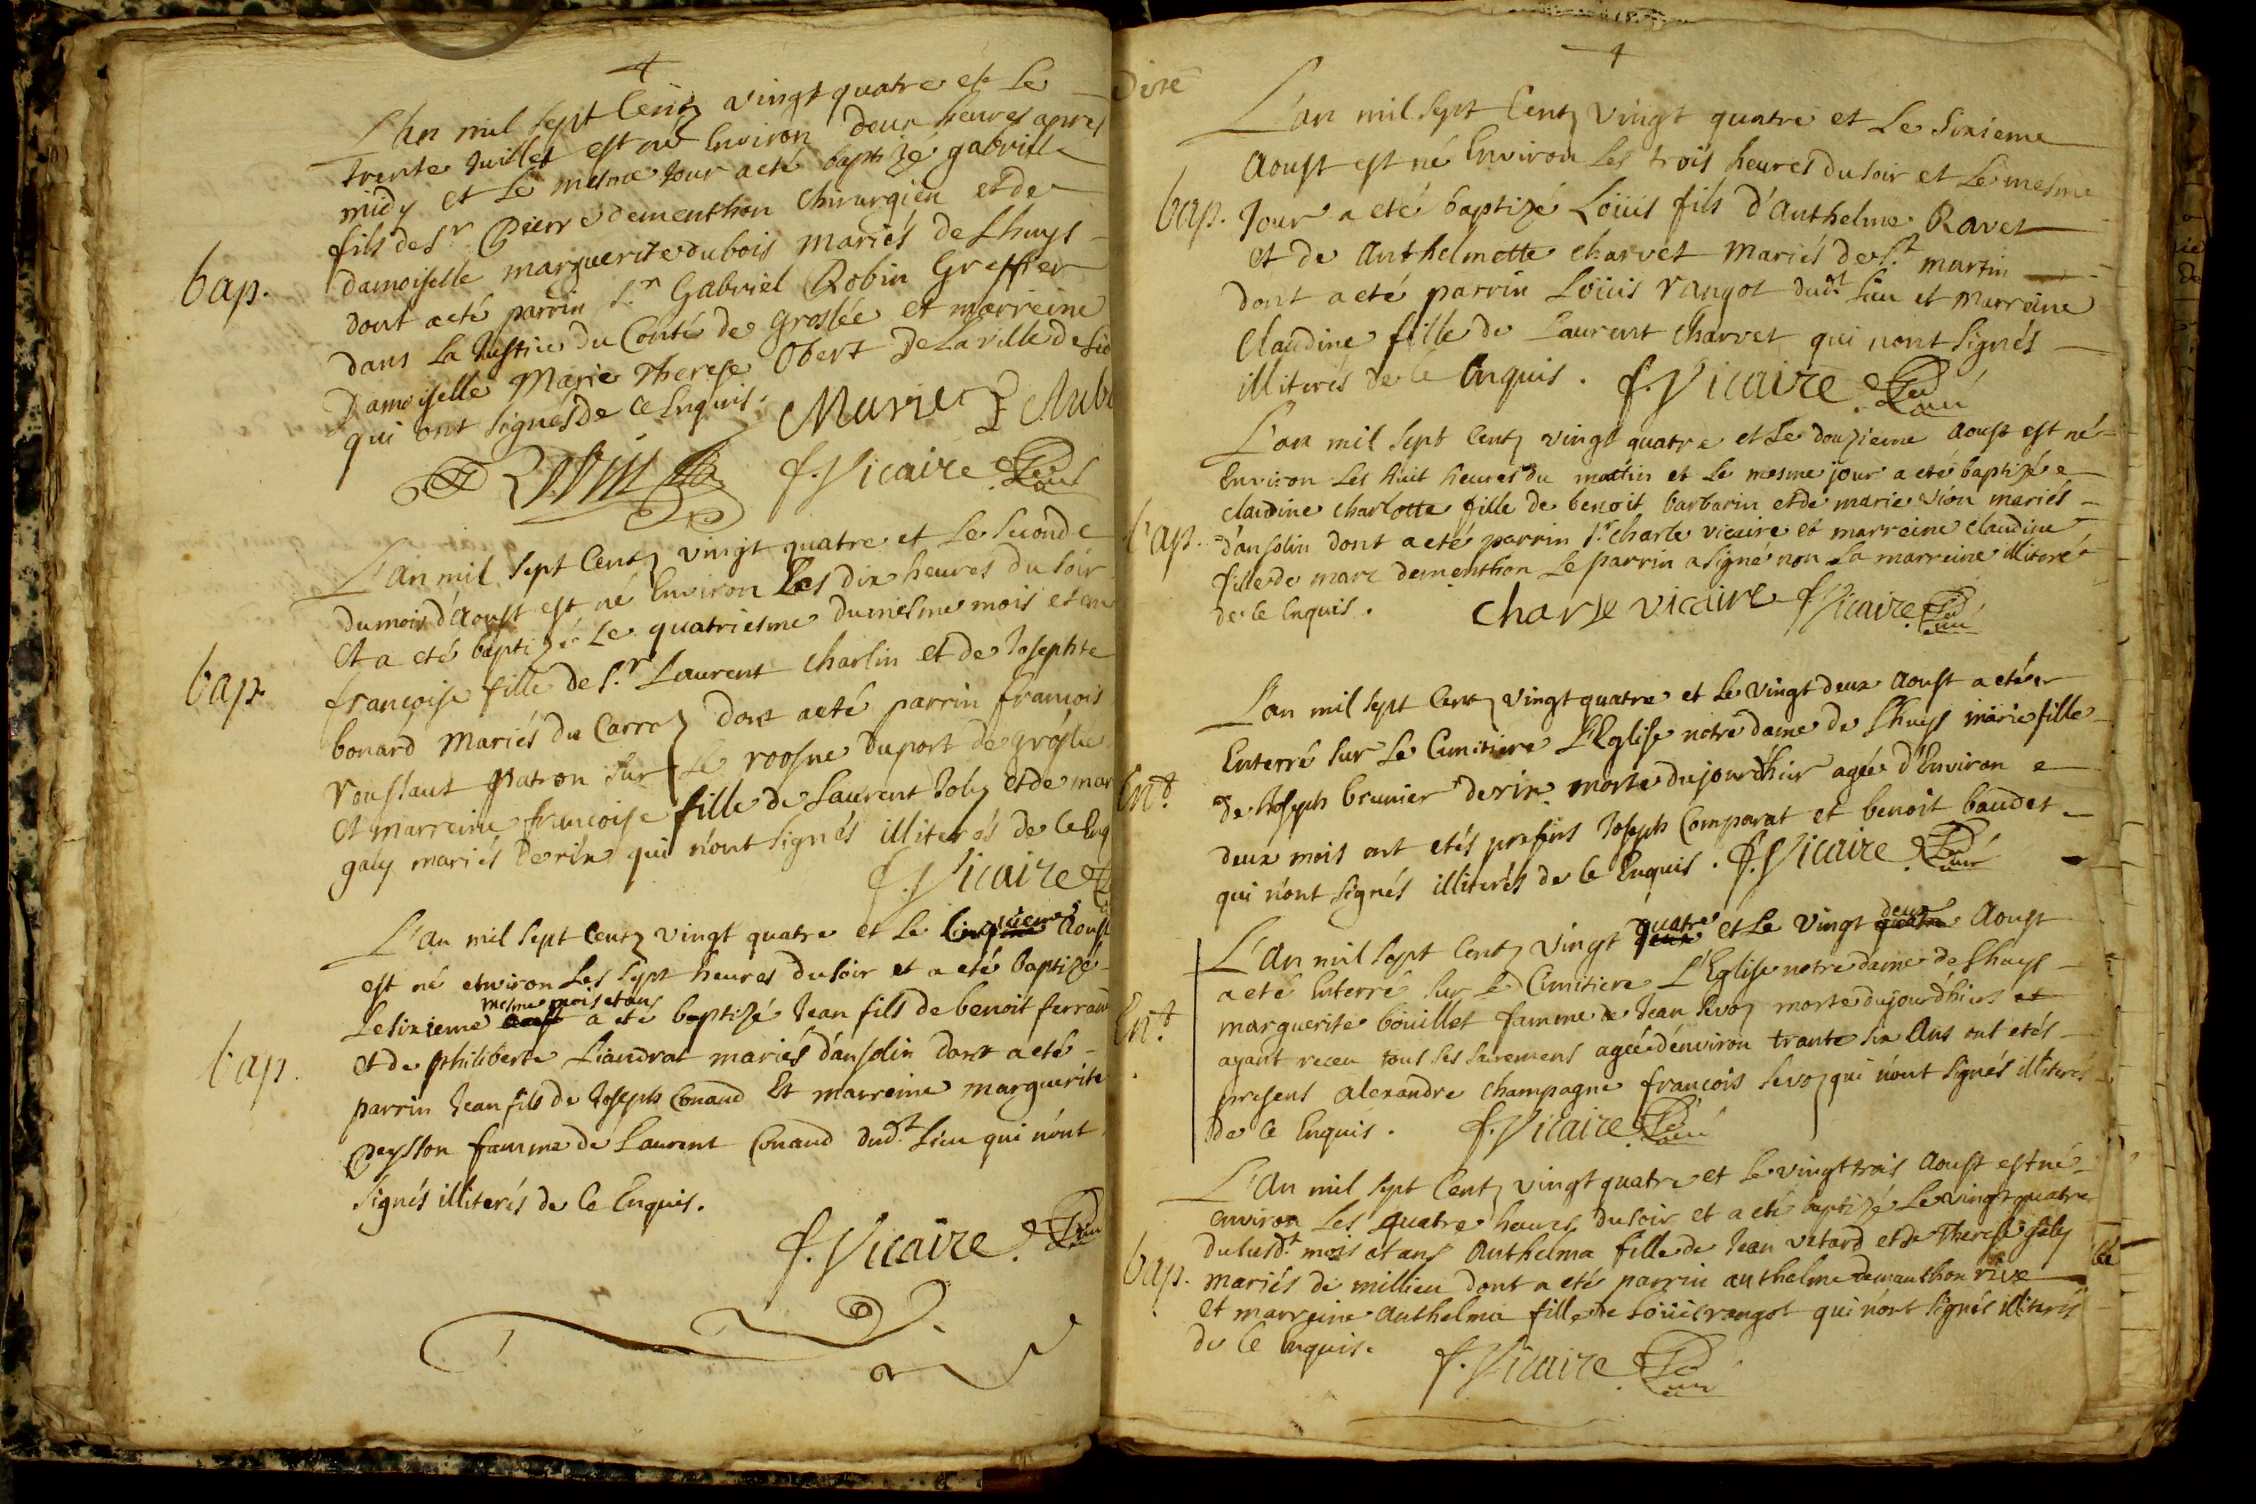 L'An mil sept Centz vingt quatre et le
trente Juillet est né Environ deux heures apres
midy et le mesme Jour a eté baptizé gabriel
fils de Sr. Pierre dementhon Chirurgien et de
bap.
damoiselle marguerite dubois mariés de Lhuys
dont a eté parrin Sr. Gabriel Robin Greffier
dans La Justice du Conté de Groslée et marreine
Damoiselle Marie Therese Obert de La ville de
qui ont signés de ce Enquis.
Marie Aub
Robin f. Vicaire
L'An mil sept Centz vingt quatre et le second
du mois d'Aoust est né Environ Les dix heures du soir
et a eté baptizé Le quatriesme du mesme mois et an
bap.
francoise fille de Sr. Laurent Charlin et de Josephte
bonard Mariés du Carroz dont a eté parrin francois
roustaut patron sur Le roosne du port de groslée
et marreine francoise fille de Laurent Joly et de mar
galy mariés de rix qui n'ont signés illiterés de ce Enq
f. Vicaire
L'An mil sept Centz vingt quatre et le Cinquieme Aoust
est né etnviron Les sept heures du soir et a eté baptizé
mesme mois et an
Le sixieme a eté baptizé Jean fils de benoit ferrand
bap.
et de philiberte Liaudrat mariés d'ansolin dont a eté
parrin Jean fils de Joseph Conand Et marreine marguerite
peysson famme de Laurent Conand dudt. Lieu qui n'ont
signés illiterés de ce Enquis.
f. Vicaire
L'an mil sept Centz vingt quatre et Le sixieme
Aoust est né Environ Les trois heures du soir et Le mesme
bap.
Jour a eté baptizé Loüis fils d'Anthelme Ravet
et de Anthelmette charvet Mariés de St. martin
dont a eté parrin Loüis rangot dudt. lieu et marreine
Claudine fille de Laurent charvet qui n'ont signés
illiterés de ce Enquis. f. Vicaire
L'an mil sept Centz vingt quatre et le douzieme Aoust est né
Environ Les huit heures du matin et le mesme jour a eté baptizée
claudine charlotte fille de benoit barbarin et de marie vion mariés
bap.
d'ansolin dont a eté parrin Sr. charle vicaire et marreine claudine
fille de marc dementhon Le parrin a signé non La marreine illiteré
de ce Enquis. charle vicaire f. Vicaire
L'an mil sept Centz vingt quatre et le vingt deux Aoust a eté
Enterré sur le Cimitiere L'Eglise notre dame de Lhuys marie fille
Ent.
de Joseph brunier de rix morte du jourd'hui agée d'Environ
deux mois ont etés presens Joseph Comparat et benoit baudet
qui n'ont signés illiterés de ce Enquis. f. Vicaire
quatre deux
L'An mil sept Centz vingt et Le vingt Aoust
a eté Enterré sur le Cimitiere L'Eglise notre dame de Lhuys
Ent.
marguerite boüillet famme de Jean sevoz morte du jourd'hui et
ayant receu tous ses sacremens agée d'environ trante six Ans ont etés
presens alexandre champagne francois sevoz qui n'ont signés illiterés
de ce Enquis. f. Vicaire
L'An mil sept Centz vingt quatre et Le vingt trois Aoust est né
environ Les quatre heures du soir et a eté baptizé Le vingt quatre
du susdt. mois et ans Anthelma fille de Jean vetard et de Therese galy
bap.
mariés de millieu dont a eté parrin anthelme demanthon rive
et marreine Anthelma fille de Loüis rangot qui n'ont signés illiterés
de ce Enquis.
f. Vicaire